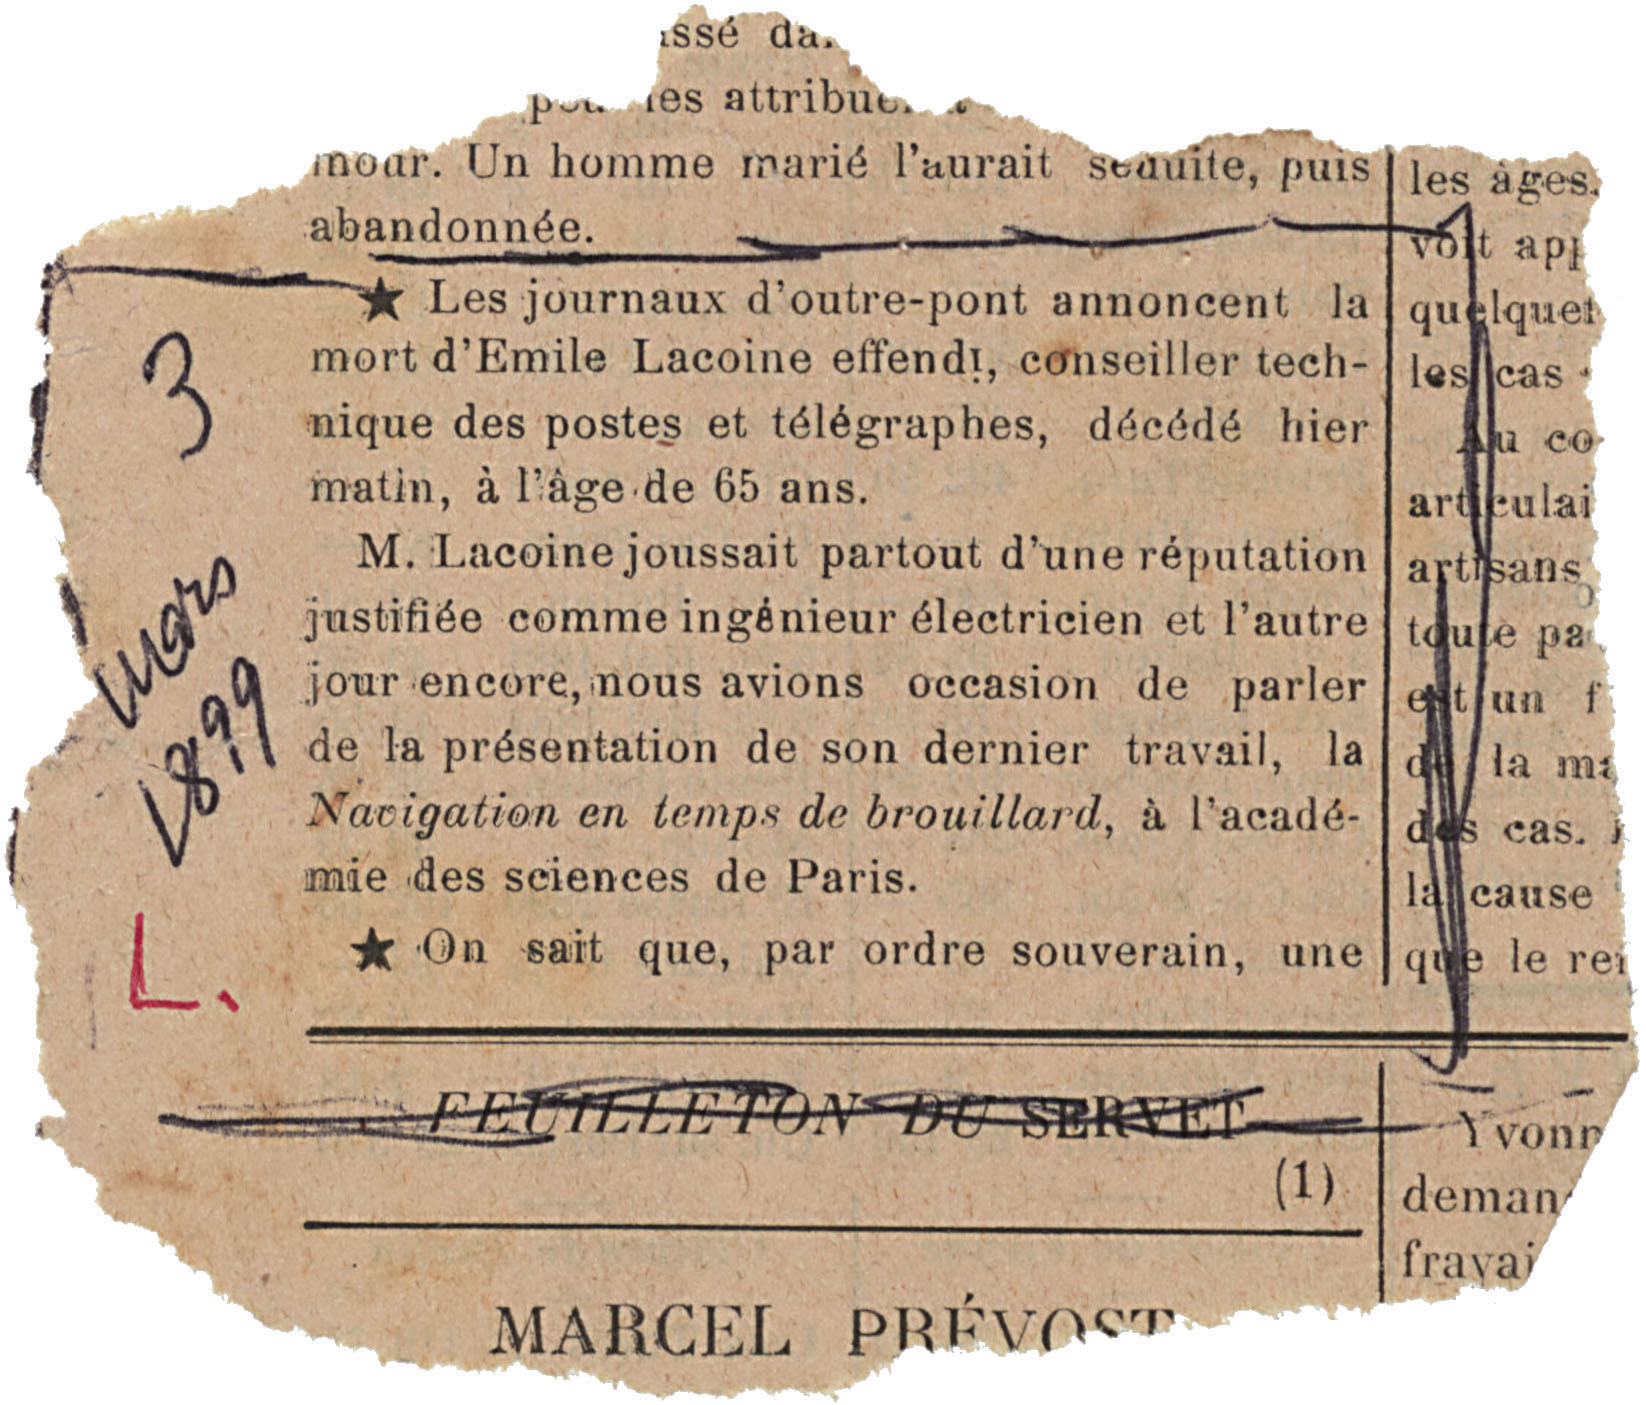 les attribue
mour. Un homme marié l'aurait séduite, puis
abandonnée.
★ Les journaux d'outre-pont annoncent la
mort d'Emile Lacoine effendi, conseiller tech-
nique des postes et télégraphes, décédé hier
matin, à l'âge de 65 ans.
M. Lacoine joussait partout d'une réputation
justifiée comme ingénieur électricien et l'autre
jour encore, nous avions occasion de parler
de la présentation de son dernier travail, la
Navigation en temps de brouillard, à l'acadé-
mie des sciences de Paris.
★ On sait que, par ordre souverain, une
3
Mars
1899
L.
les âges.
voit app
quelque
les cas
Au co
articulai
artisans
toute pa
est un f
de la ma
des cas.
la cause
que le re
FEUILLETON DU SERVET
(1)
MARCEL PRÉVOST
Yvonn
deman
fravai